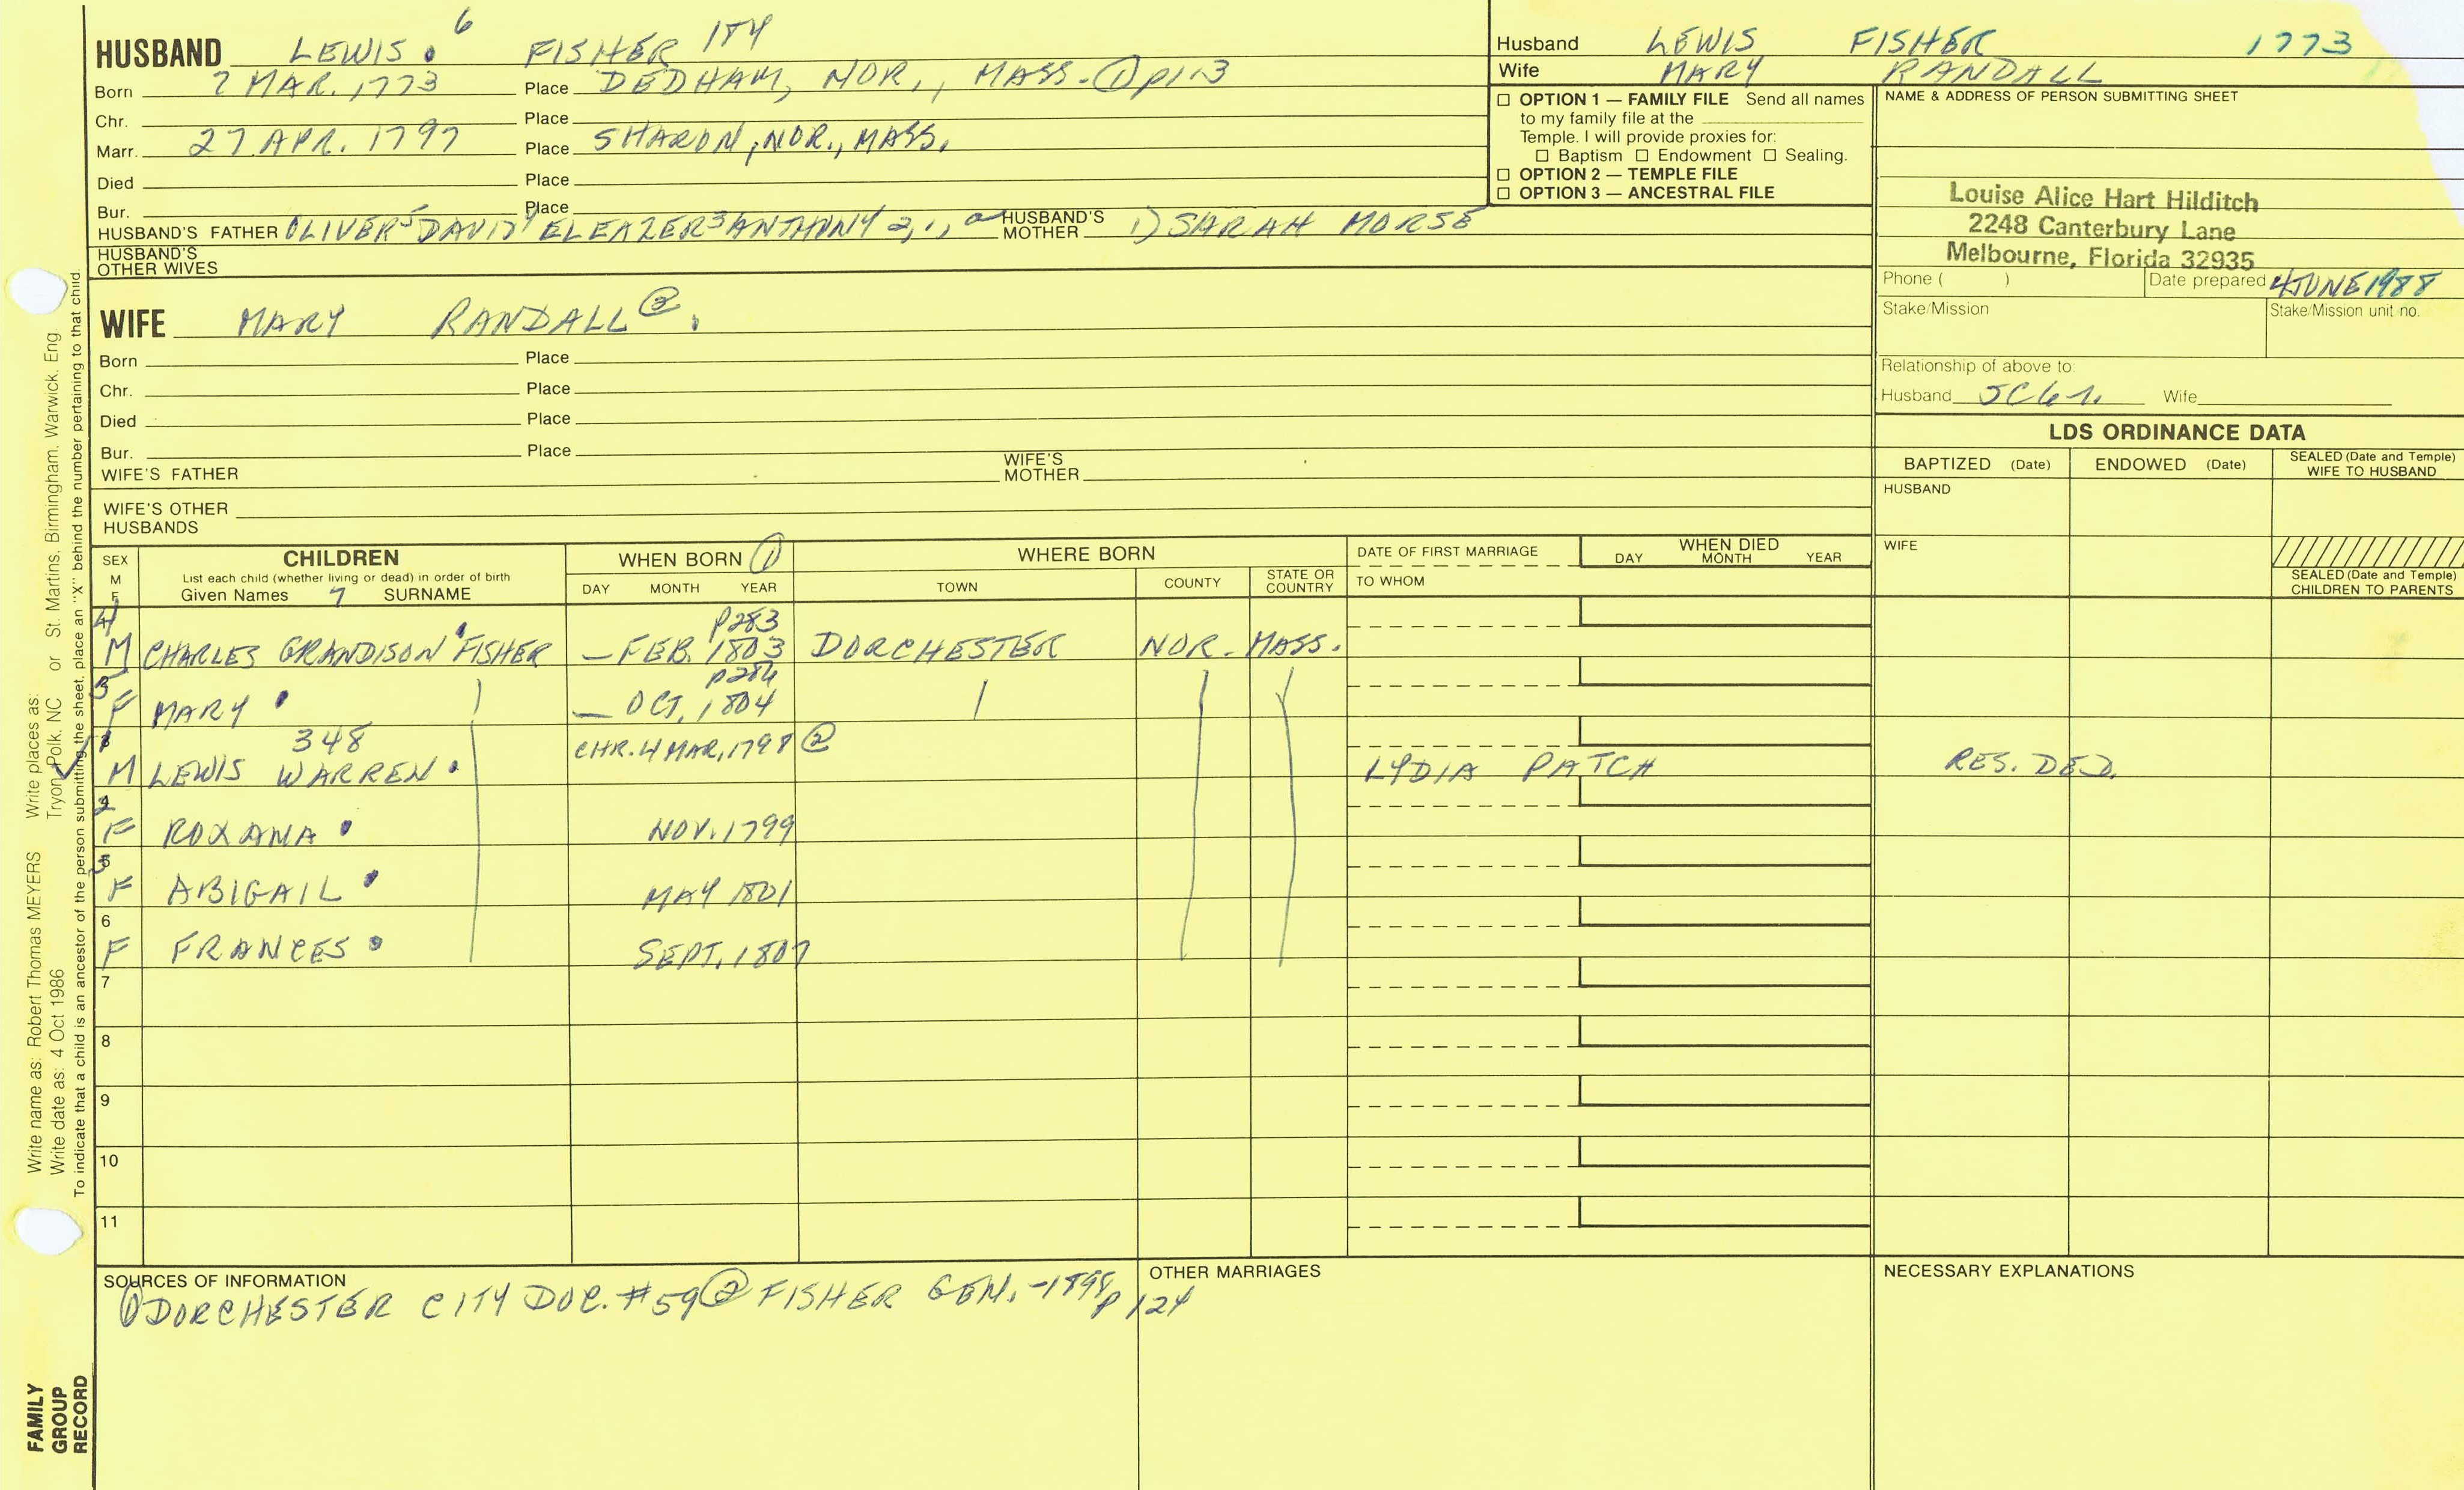 HUSBAND LEWIS 6 FISHER 174
Born 7 MAR. 1773 Place DEDHAM, NOR., MASS.
Chr. Place
Marr. 27 APR. 1797 Place SHARON, NOR., MASS.
Died Place
Bur. Place
HUSBAND'S FATHER OLIVER 5 DAVID 4 ELEAZER 3 ANTHONY 2, 1, HUSBAND'S MOTHER 1) SARAH MORSE
HUSBAND'S OTHER WIVES
WIFE MARY RANDALL ②.
Born Place
Chr. Place
Died Place
Bur. Place
WIFE'S FATHER WIFE'S MOTHER
WIFE'S OTHER HUSBANDS
Husband LEWIS FISHER 1773
Wife MARY RANDALL
☐ OPTION 1 — FAMILY FILE Send all names
to my family file at the
Temple. I will provide proxies for:
☐ Baptism ☐ Endowment ☐ Sealing.
☐ OPTION 2 — TEMPLE FILE
☐ OPTION 3 — ANCESTRAL FILE
NAME & ADDRESS OF PERSON SUBMITTING SHEET
Louise Alice Hart Hilditch
2248 Canterbury Lane
Melbourne, Florida 32935
Phone ( ) Date prepared 4 JUNE 1988
Stake/Mission Stake/Mission unit no.
Relationship of above to:
Husband Wife
LDS ORDINANCE DATA
BAPTIZED (Date) ENDOWED (Date) SEALED (Date and Temple) WIFE TO HUSBAND
HUSBAND
WIFE
SEALED (Date and Temple) CHILDREN TO PARENTS
SEX M F CHILDREN WHEN BORN ① WHERE BORN DATE OF FIRST MARRIAGE WHEN DIED
List each child (whether living or dead) in order of birth
Given Names 7 SURNAME DAY MONTH YEAR TOWN COUNTY STATE OR COUNTRY TO WHOM DAY MONTH YEAR
4 p283
M CHARLES GRANDISON FISHER — FEB. 1803 DORCHESTER NOR. MASS.
5 p284
F MARY — OCT. 1804
1 348 CHR. 4 MAR, 1798 ②
M LEWIS WARREN LYDIA PATCH RES. DED.
2
F ROXANA NOV. 1799
3
F ABIGAIL MAY 1801
6
F FRANCES SEPT. 1807
7
8
9
10
11
SOURCES OF INFORMATION OTHER MARRIAGES NECESSARY EXPLANATIONS
① DORCHESTER CITY DOC. #59 ② FISHER GEN. - 1898 p 124
Write name as: Robert Thomas MEYERS Write places as:
Write date as: 4 Oct 1986 Tryon, Polk, NC or St. Martins, Birmingham, Warwick, Eng
To indicate that a child is an ancestor of the person submitting the sheet, place an "X" behind the number pertaining to that child.
FAMILY
GROUP
RECORD